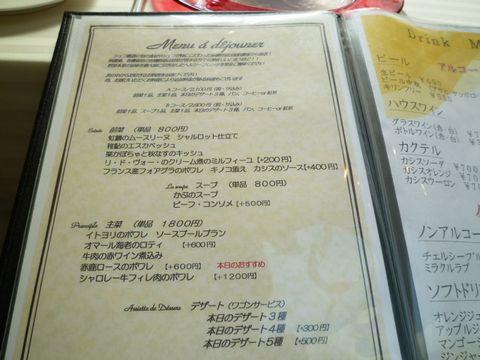 Menu á déjouner
Aコース/2100円(税・サ込み)
前菜1品、主菜1品、本日のデザート3種、パン、コーヒーor紅茶
前菜1品、スープ1品、主菜1品、本日のデザート3種、パン、コーヒーor紅茶
Entrée 前菜 (単品 800円)
虹鱒のムースリーヌ シャルロット仕立て
稚鮎のエスカベッシュ
栗かぼちゃと秋なすのキッシュ
リ・ド・ヴォーのクリーム煮のミルフィーユ 【+200円】
フランス産フォアグラのポワレ キノコ添え カシスのソース【+400円】
La soupe スープ (単品 800円)
かぶのスープ
ビーフ・コンソメ 【+500円】
Principle 主菜 (単品 1800円)
イトヨリのポワレ ソースブールブラン
オマール海老のロティ 【+600円】
牛肉の赤ワイン煮込み
赤鹿ロースのポワレ 【+600円】 本日のおすすめ
シャロレー牛フィレ肉のポワレ 【+1200円】
Assiette de Déssers デザート (ワゴンサービス)
本日のデザート3種
本日のデザート4種 【+300円】
本日のデザート5種 【+500円】
Drink M
アルコー
ビール
キリンフリー
ハウスワイン
グラスワイン(赤・白)
ボトルワイン(赤・白)
カクテル
カシスソーダ ¥70
カシスオレンジ ¥70
カシスウーロン ¥70
ノンアルコー
チェルシーブル
ミラクルラブ
ソフトドリ
オレンジジュ
アップルジュ
マンゴー
ジンジャ